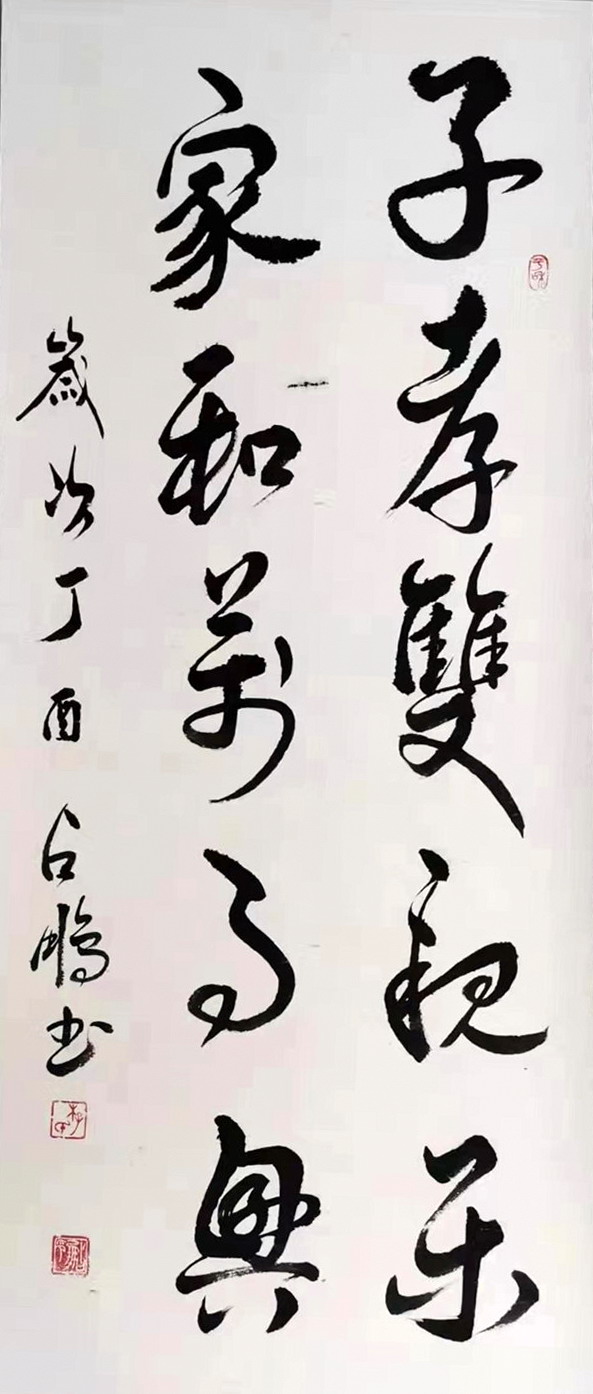 子孝雙親樂
家和萬事興
歲次丁酉占鵬书